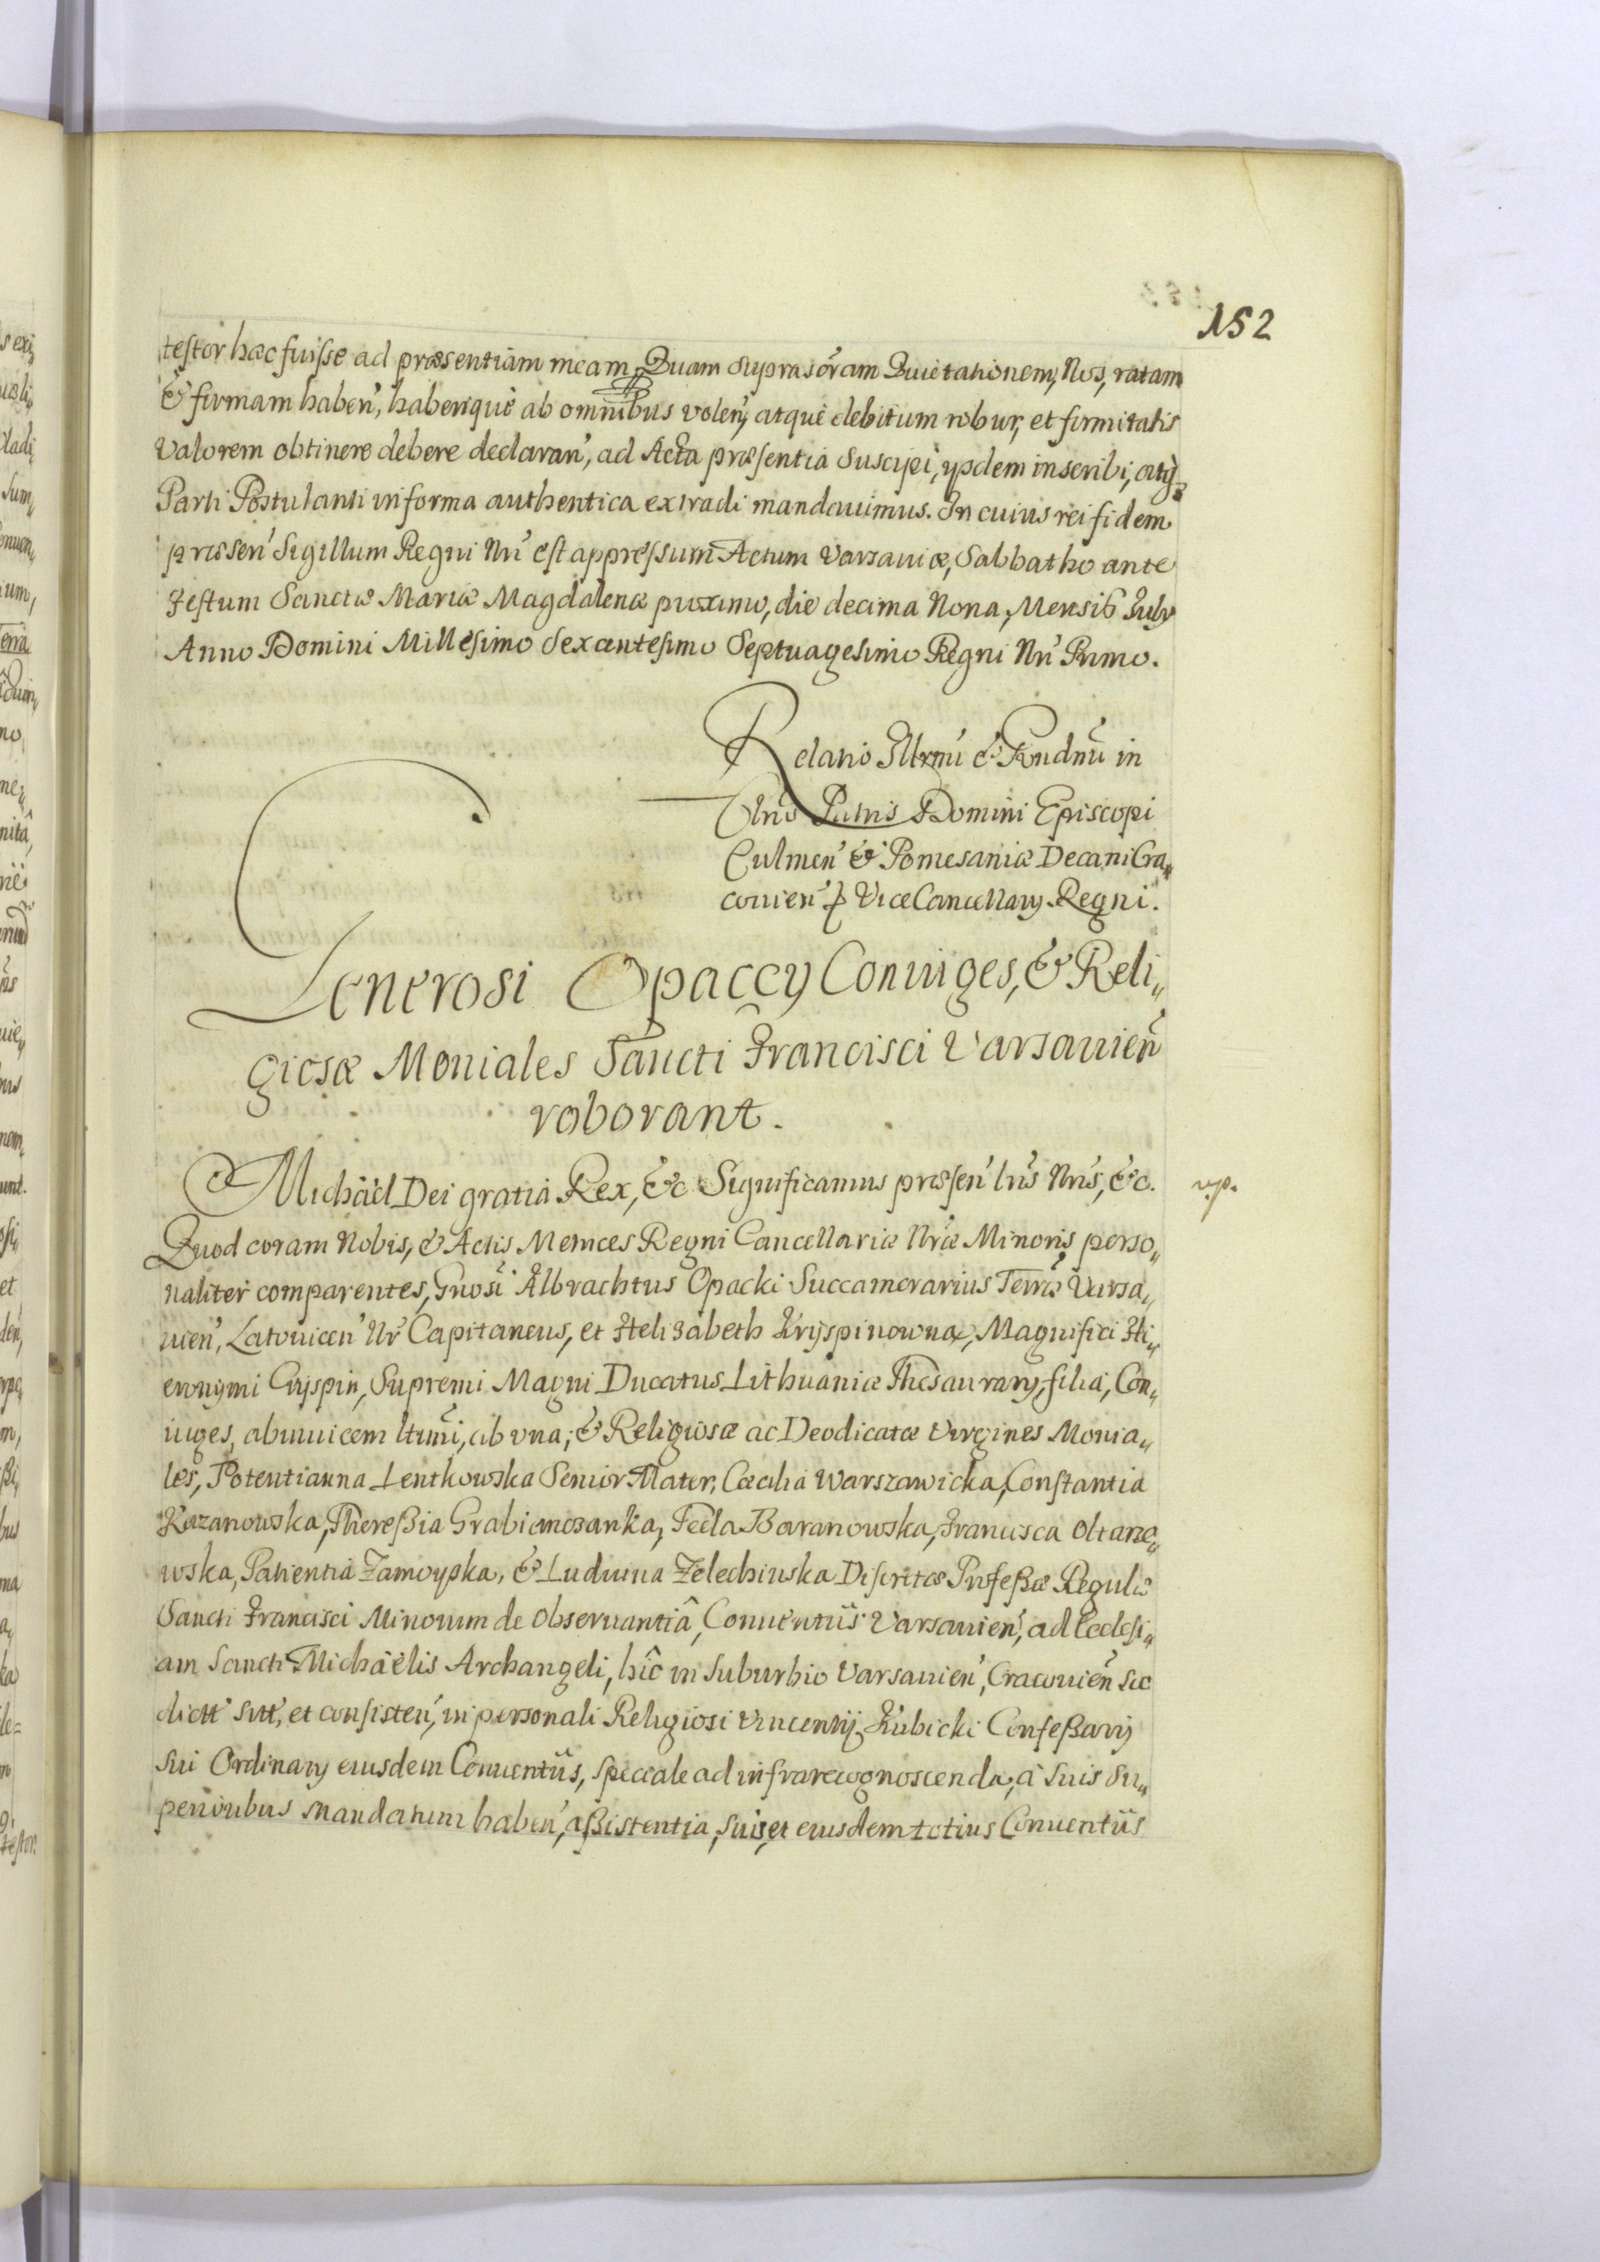 152
testor hæc fuisse ad præsentiam meam. Quam suprascr̃am Quietationem, Nos, ratam
& firmam haben̄, haberiquè ab omnibus volen̄, atquè debitum robur, et firmitatis
valorem obtinere debere declaran̄, ad Acta præsentia suscipi, ijsdem inscribi, atq́
Parti Postulanti in forma authentica extradi mandauimus. In cuius rei fidem
præsen̄ Sigillum Regni Nr̄i est appressum Actum Varsauiæ, Sabbatho ante
Festum Sanctæ Mariæ Magdalenæ proximo, die decima Nona, Mensis July
Anno Domini Millesimo Sexcentesimo Septuagesimo Regni Nr̄i Primo.
Relatio Illr̄mi & Rnd̄mi in
Chr̄o Patris Domini Episcopi
Culmen̄ & Pomesaniæ Decani Cra„
couien̄ ViceCancellary Regni.
Generosi Opaccy Coniuges, & Reli„
giosæ Moniales Sancti Francisci Varsauien̄
roborant.
Michäel Dei gratia Rex, &c Significamus præsen̄ lr̄is Nr̄is, &c.
v.p.
Quod coram Nobis, & Actis Metrices Regni Cancellariæ Nr̄æ Minoris perso„
naliter comparentes, Gnosi Albrachtus Opacki Succamerarius Terræ Varsa„
uien̄, Latouicen̄ Nr̄ Capitaneus, et Helisabeth Kryspinowna, Magnifici Hi„
eronymi Cryspin, Supremi Magni Ducatus Lithuaniæ Thesaurary, filia, Con„
iuges, abinuicem ltimi, ab vna; & Religiosæ ac Deodicatæ Virgines Monia„
les, Potentianna Lentkowska Senior Mater, Cæcilia Warszawicka, Constantia
Kazanowska, Theressia Grabianozanka, Tecla Baranowska, Francisca Oltarze„
wska, Patientia Zamoyska, & Ludiuina Zelechiuska Discretæ Professæ Regulæ
Sancti Francisci Minorum de Obseruantiâ, Conuentûs Varsauien̄, ad Ecclesi„
am Sancti Michäelis Archangeli, hîc in suburbio Varsauien̄, Cracouien̄ sic
dictt̄ sitt̄, et consisten̄, in personali Religiosi Vincentij Kubicki Confessarij
sui Ordinary eiusdem Conuentûs, speciale ad infrarecognoscenda, à suis su„
perioribus mandatum haben̄, assistentia, suis, et eiusdem totius Conuentûs